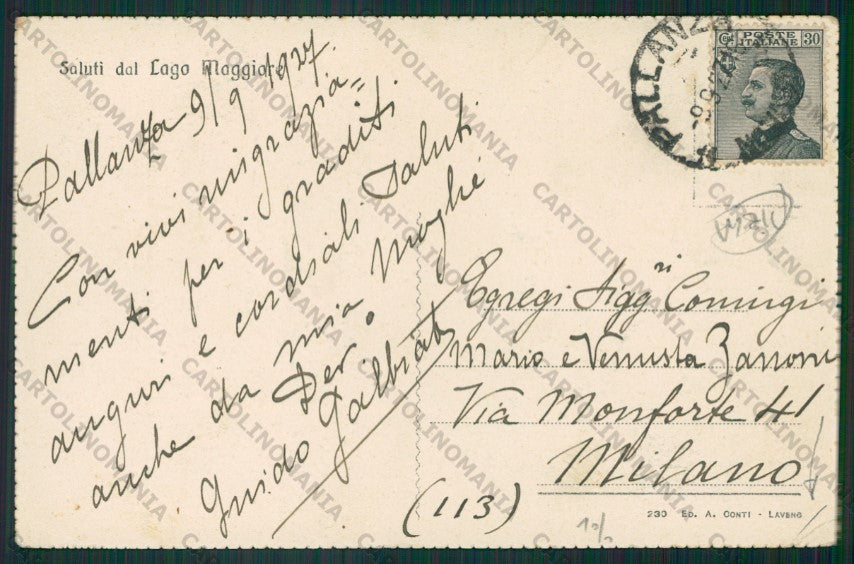 Saluti dal Lago Maggiore
Pallanza 9/9 1927.
Con vivi ringrazia=
menti per i graditi
auguri e cordiali saluti
anche da mia moglie
Dev.
Guido Galbiati
(113)
PALLANZA
POSTE
ITALIANE
Cent 30
Egregi Sigg ri Coniugi
Mario e Venusta Zanoni
Via Monforte 41
Milano
233 ED. A. CONTI - LAVENO
CARTOLINOMANIA